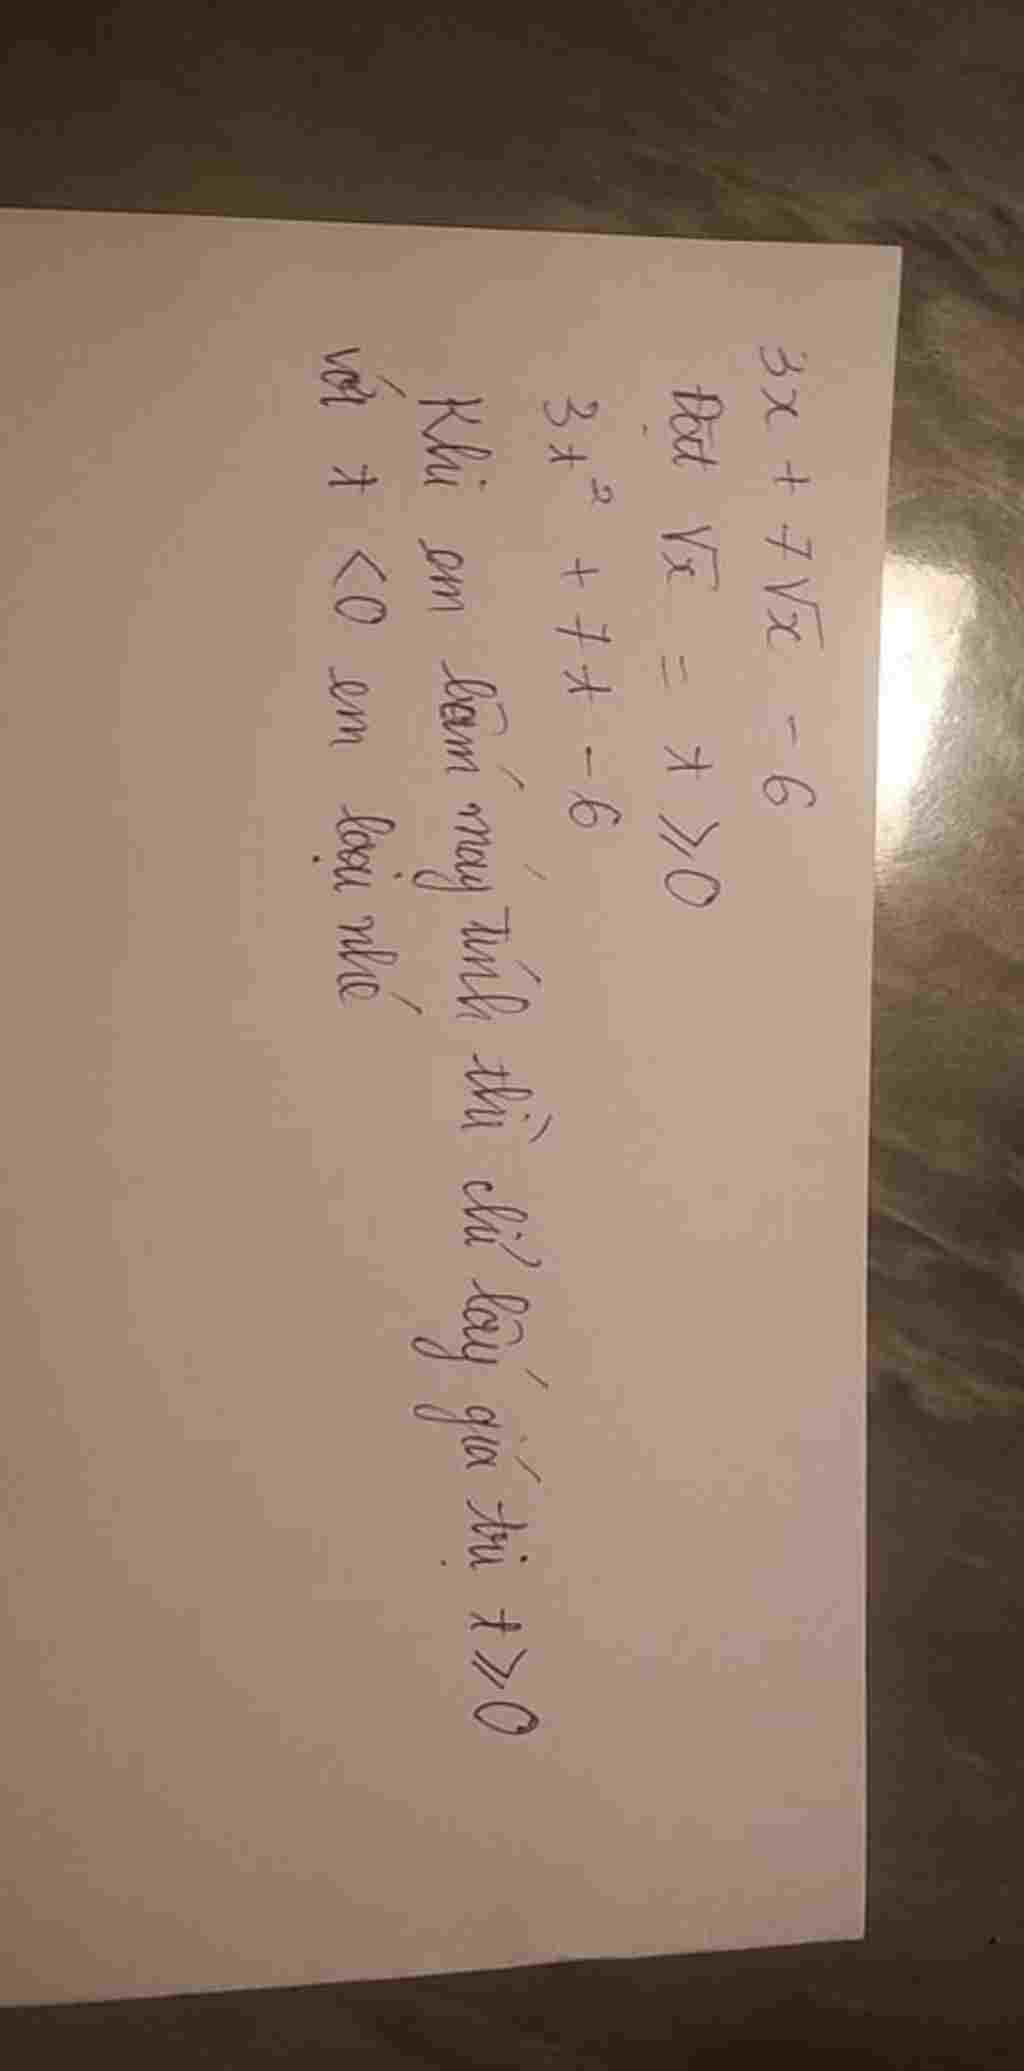 3x + 7√x - 6
Đặt √x = t ≥ 0
3t² + 7t - 6
Khi em bấm máy tính thì chỉ lấy giá trị t ≥ 0
với t < 0 em loại nhé